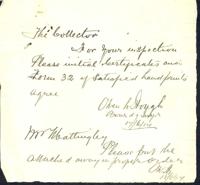 The Collector
For your inspection
Please initial Certificates and
Form 32 if satisfied handprints
agree
Mr Mattingley
Please put the
attached away in proper order